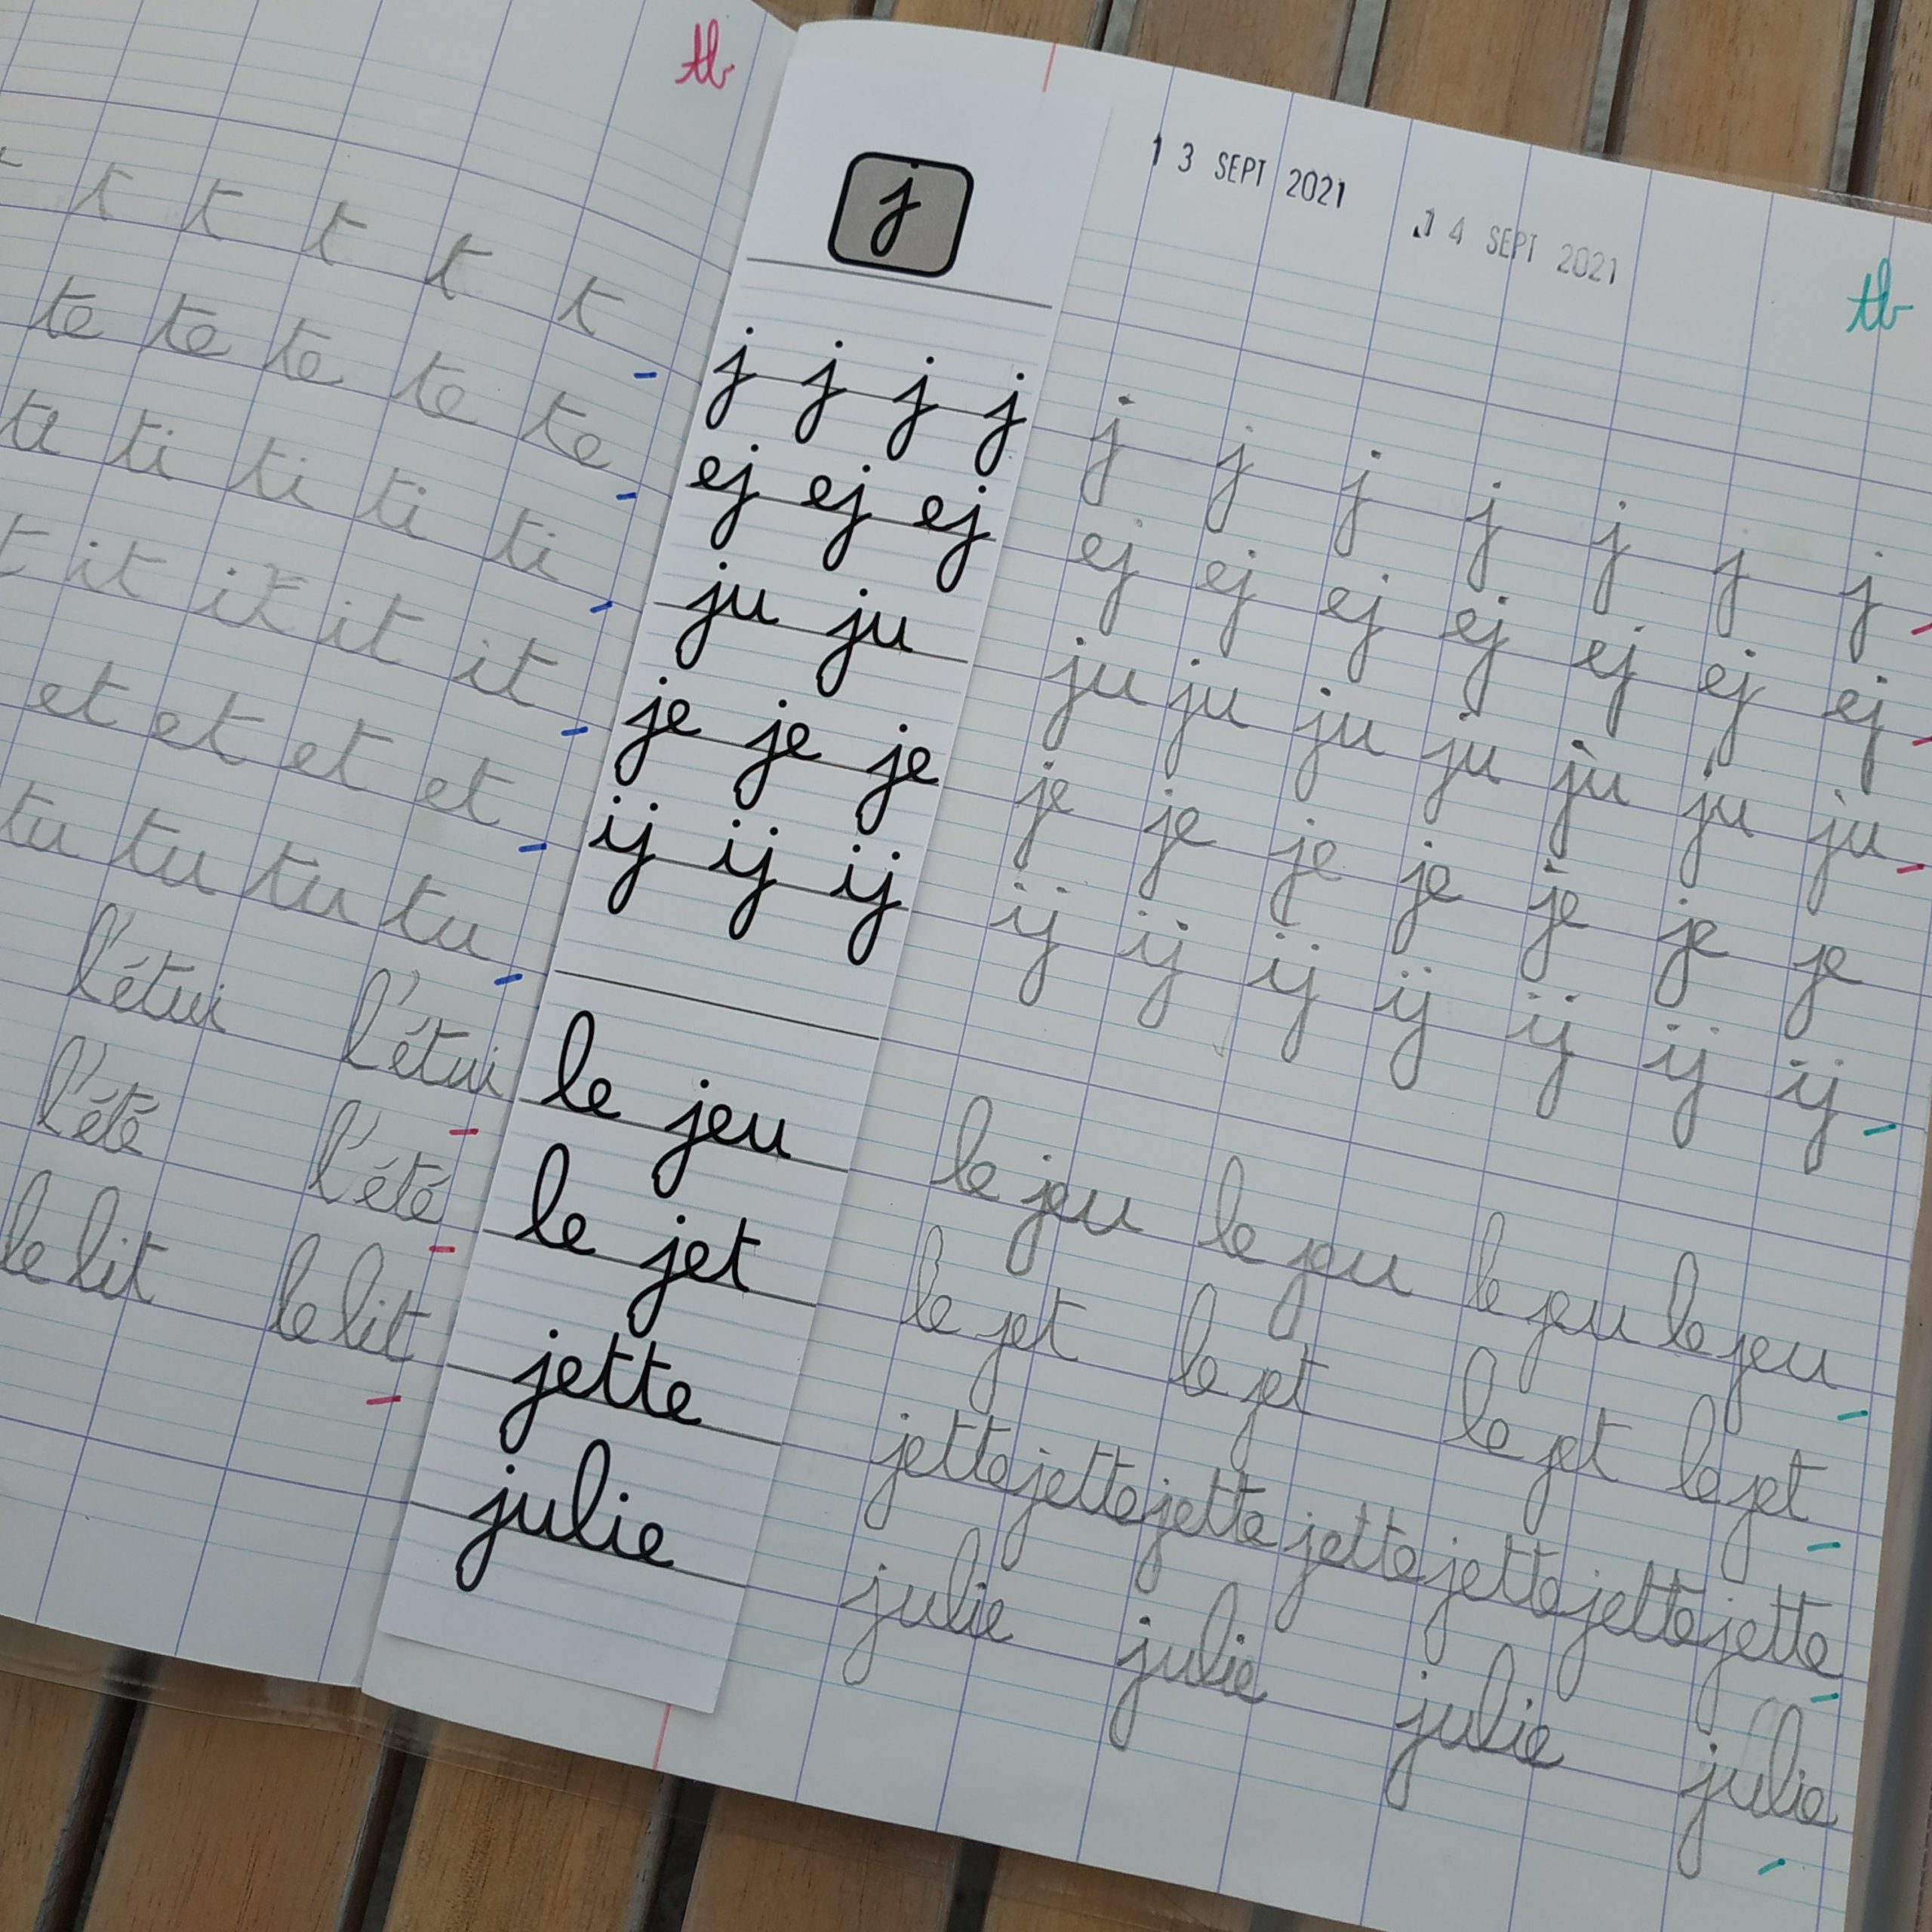 tb
t t t t t
te te te te te
te ti ti ti ti
it it it it
et et et et
tu tu tu tu
l'étui l'étui
l'été l'été
le lit le lit
j
j j j j
ej ej ej
ju ju
je je je
ij ij ij
le jeu
le jet
jette
julie
13 SEPT 2021
14 SEPT 2021
tb
j j j j j j j
ej ej ej ej ej ej ej
ju ju ju ju ju ju ju
je je je je je je je
ij ij ij ij ij ij ij
le jeu le jeu le jeu le jeu
le jet le jet le jet le jet
jette jette jette jette jette jette jette
julie julie julie julie